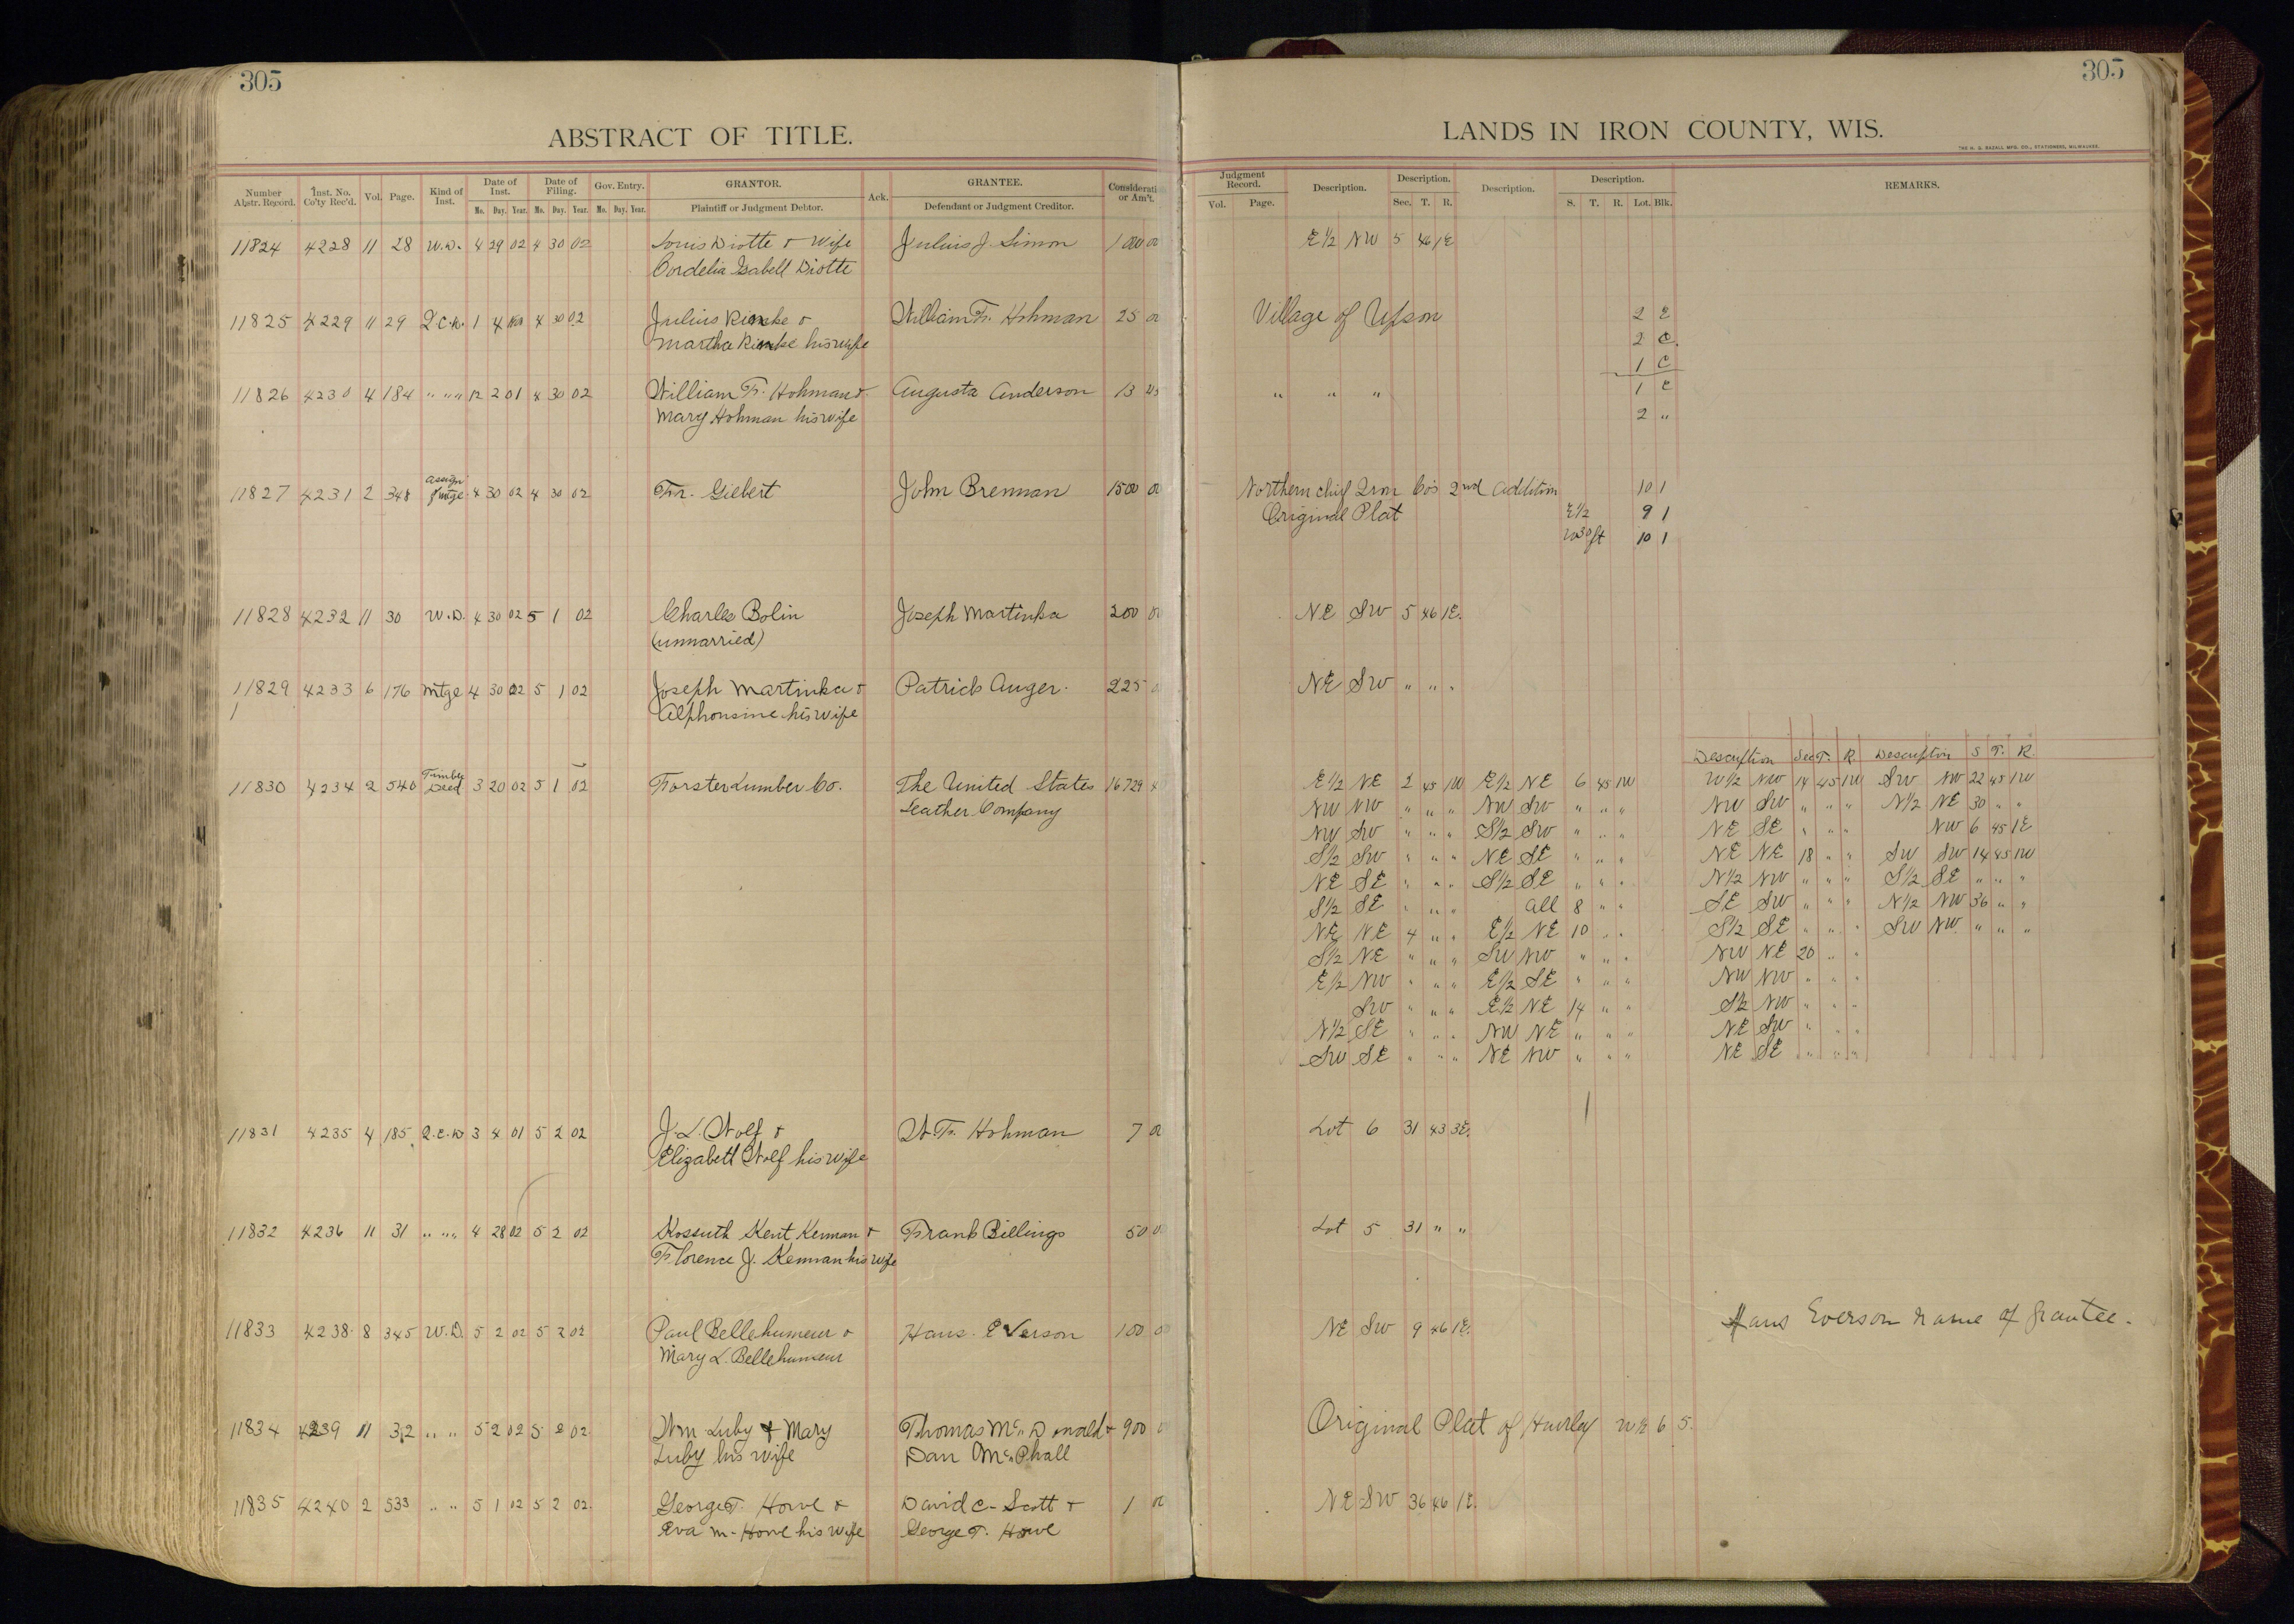 305
305
ABSTRACT OF TITLE.
LANDS IN IRON COUNTY, WIS.
THE H. G. RAZALL MFG. CO., STATIONERS, MILWAUKEE.
Number Abstr. Record. Inst. No. Co'ty Rec'd. Vol. Page. Kind of Inst. Date of Inst. Mo. Day. Year. Date of Filing. Mo. Day. Year. Gov. Entry. Mo. Day. Year. GRANTOR. Plaintiff or Judgment Debtor. Ack. GRANTEE. Defendant or Judgment Creditor. Consideration or Am't.
Judgment Record. Vol. Page. Description. Description. Sec. T. R. Description. Description. S. T. R. Lot. Blk. REMARKS.
11824 4228 11 28 W.D. 4 29 02 4 30 02 Louis Diotte & Wife Julius J. Simon 1000 00 E½ NW 5 46 1E
Cordelia Isabell Diotte
11825 4229 11 29 Q.C.D. 1 4 4 30 02 Julius & William Fr. Hohman 25 00 Village of Upson 2 E
Martha his wife 2 C.
1 C
11826 4230 4 184 " " " 12 2 01 4 30 02 William Fr. Hohman & Augusta Anderson 13 45 " " " 1 E
Mary Hohman his wife 2 "
11827 4231 2 348 Assign mtge 4 30 02 4 30 02 Fr. Giebert John Brennan 1500 00 Northern Chief Iron Co's 2nd Addition 10 1
Original Plat E½ 9 1
W30ft 10 1
11828 4232 11 30 W.D. 4 30 02 5 1 02 Charles Bolin Joseph Martinka 200 00 NE SW 5 46 1E.
(unmarried)
11829 4233 6 176 Mtge 4 30 02 5 1 02 Joseph Martinka & Patrick Auger. 225 NE SW " " "
Alphonsine his wife
Description Sec T. R. Description S T. R.
11830 4234 2 540 Timber Deed 3 20 02 5 1 02 Forster Lumber Co. The United States 16729 E½ NE 2 45 1W E½ NE 6 45 1W W½ NW 14 45 1W SW NW 22 45 1W
Leather Company NW NW " " " NW SW " " " NW SW " " " N½ NE 30 " "
NW SW " " " S½ SW " " " NE SE " " " NW 6 45 1E
S½ SW " " " NE SE " " " NE NE 18 " " SW SW 14 45 1W
NE SE " " " S½ SE " " " N½ NW " " " S½ SE " " "
S½ SE " " " All 8 " " SE SW " " " N½ NW 36 " "
NE NE 4 " " E½ NE 10 " " S½ SE " " " SW NW " " "
S½ NE " " " SW NW " " " NW NE 20 " "
E½ NW " " " E½ SE " " " NW NW " " "
SW " " " E½ NE 14 " " S½ NW " " "
N½ SE " " " NW NE " " " NE SW " " "
SW SE " " " NE NW " " " NE SE " " "
11831 4235 4 185 Q.C.D 3 4 01 5 2 02 J. L. Wolf & W. Fr. Hohman 7 00 Lot 6 31 43 3E.
Elizabeth Wolf his wife
11832 4236 11 31 " " " 4 28 02 5 2 02 Kossuth Kent Kennan & Frank Billings 50 00 Lot 5 31 " "
Florence J. Kennan his wife
11833 4238 8 345 W.D. 5 2 02 5 2 02 Paul Bellehumeur & Hans. Everson 100 00 NE SW 9 46 1E. Hans Everson name of grantee.
Mary L. Bellehumeur
11834 4239 11 32 " " 5 2 02 5 2 02 Wm Luby & Mary Thomas McDonald & 900 Original Plat of Hurley 6 5.
Luby his wife Dan McPhall
11835 4240 2 533 " " 5 1 02 5 2 02. George T. Howe & David C. Scott & 1 00 NE SW 36 46 1E.
Eva M. Howe his wife George T. Howe